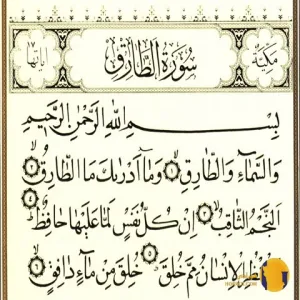 مكية سورة الطارق آياتها ١٧
بِسْمِ اللهِ الرَّحْمٰنِ الرَّحِيمِ
وَالسَّمَاءِ وَالطَّارِقِ ١ وَمَا أَدْرٰىكَ مَا الطَّارِقُ ٢
النَّجْمُ الثَّاقِبُ ٣ إِنْ كُلُّ نَفْسٍ لَمَّا عَلَيْهَا حَافِظٌ ٤
الْإِنْسَانُ مِمَّ خُلِقَ ٥ خُلِقَ مِنْ مَاءٍ دَافِقٍ ٦